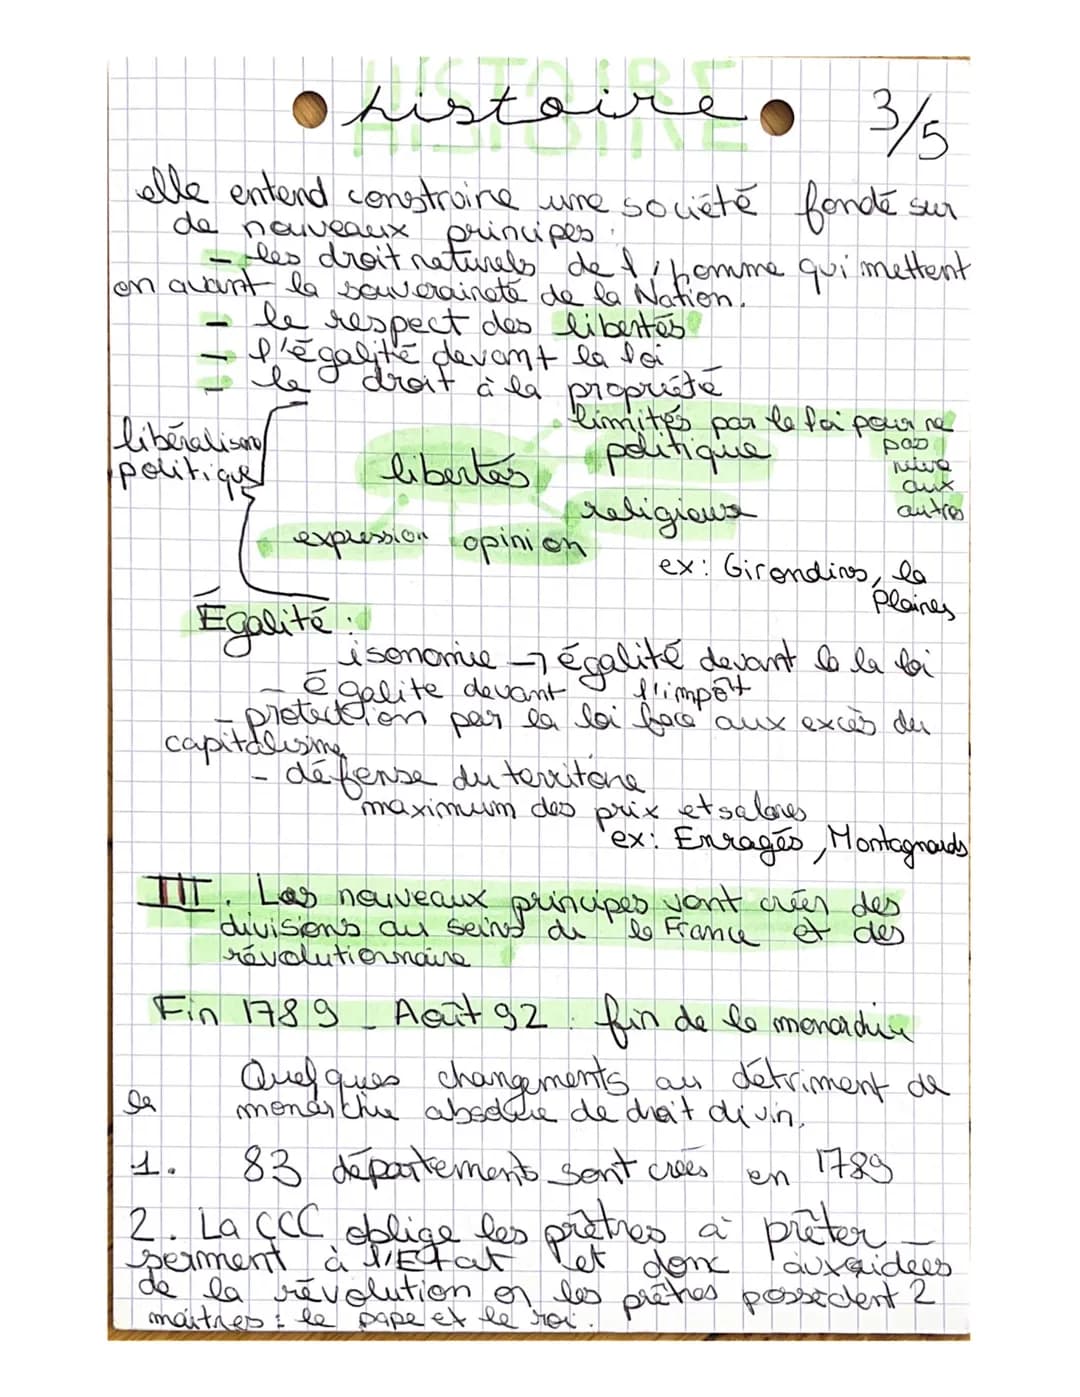 HISTOIRE
histoire
3/5
elle entend construire une société fondé sur
de nouveaux principes :
- les droit naturels de l'homme qui mettent
en avant la souveraineté de la Nation.
- le respect des libertés
- l'égalité devant la loi
- le droit à la propriété
libéralisme
politique
limités par la loi pour ne
pas
nuire
aux
autres
politique
libertés
religieux
expression opinion
ex: Girondins, la
Plaines
Égalité :
isonomie → égalité devant la la loi
- égalite devant l'impôt
- protection par la loi face aux excès du
capitalisme
- défense du territoire
maximum des prix et salaires
ex: Enragés, Montagnards
III. Les nouveaux principes vont créer des
divisions au seins de la France et des
révolutionnaire
Fin 1789 - Août 92 : fin de la monarchie
Quelques changements au détriment de
la monarchie absolue de droit divin.
1. 83 départements sont créés en 1789
2. La CCC oblige les prêtres à prêter
serment à l'Etat et donc aux idées
de la révolution or les prêtres possèdent 2
maîtres : le pape et le roi.